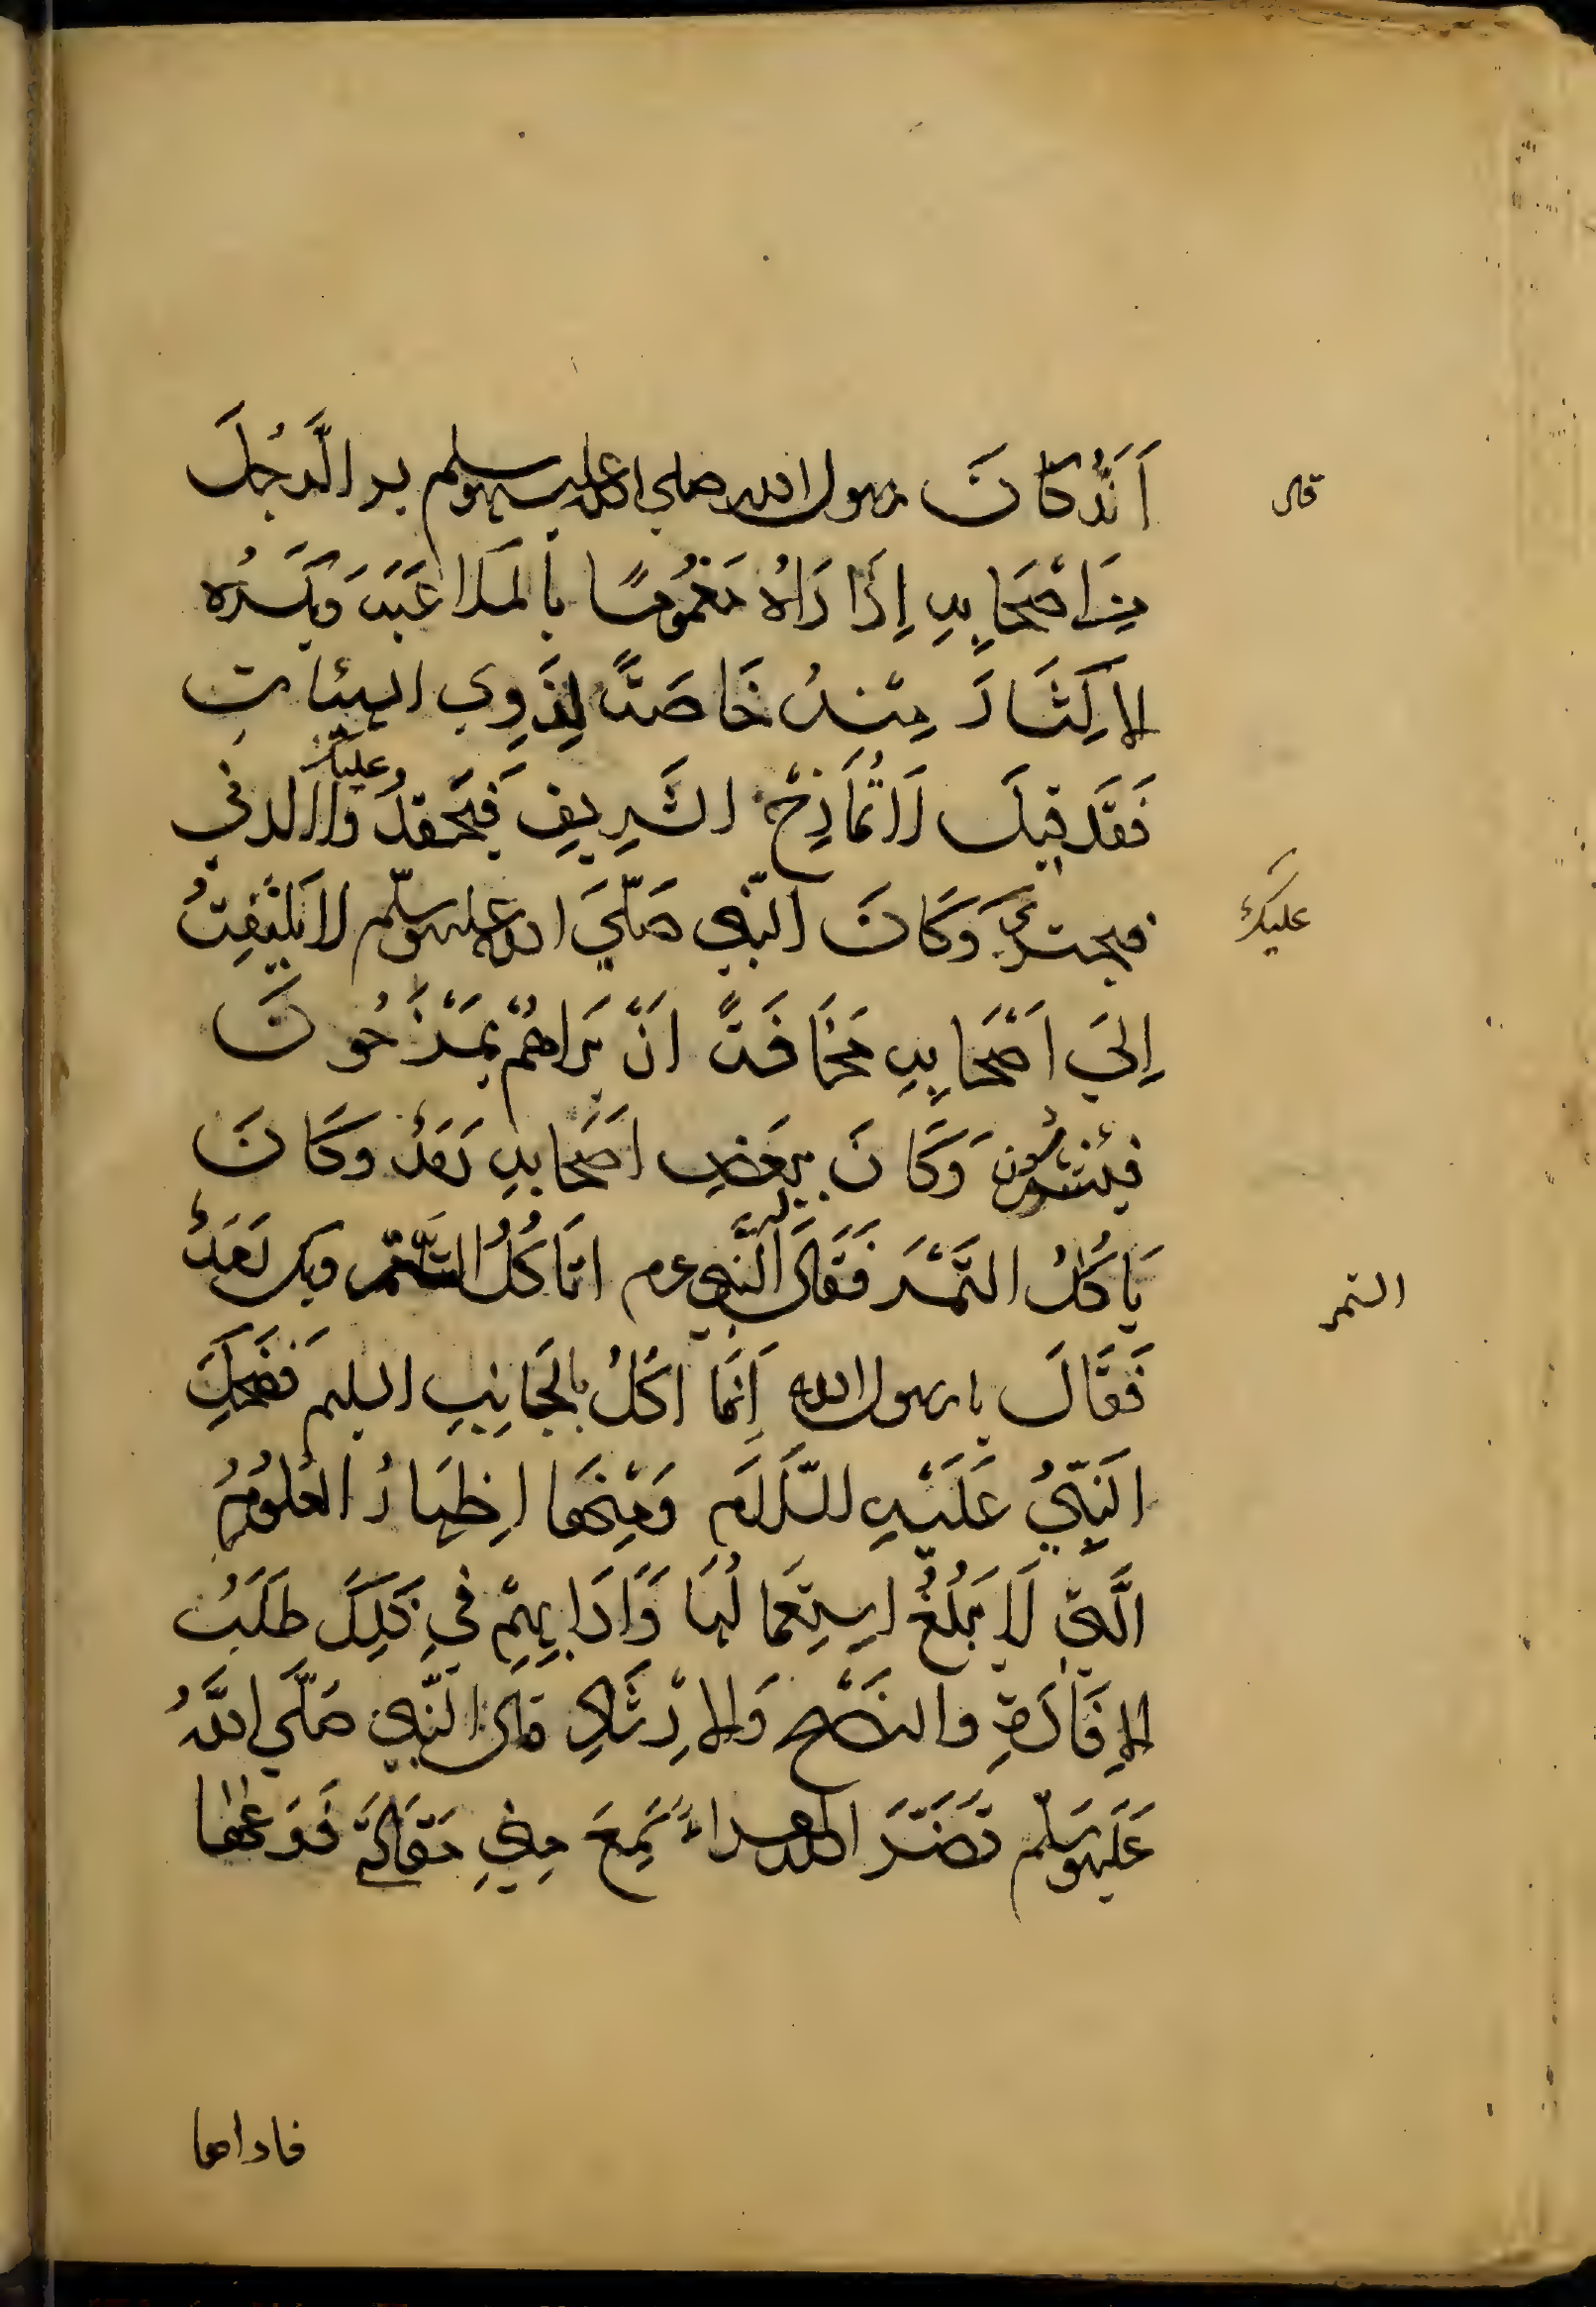 اَنَّهُ كَانَ رسول الله صلي الله عليه وسلم يسر الَّرجُلَ
قال
مِنَ اَصْحَابِهِ اِذَا رَاهُ مَغْمُومًا بِالمَلَاعَبَه وَيَكْرَه
لاِكِثَارَ مِنْهُ خَاصَةً لِذَوِي الهيئاتِ
فَقَد قيلَ لَا تُمَازِحْ الشَرِيفِ فَيَحْقدُ عليك وَلا الدني
فيجترئ وَكَانَ النَّبِي صَلّيَ الله عليه وسلّم لَا يَلْتَفِتُ
عليك
اِليَ اَصْحَابِهِ مَخَافَةً اَنْ يَرَاهُمْ يَمْزَحُونَ
فينشون وَكَانَ بِبَعْضِ اَصْحَابِهِ رَمَدٌ وَكَانَ
يَاكُلُ التَمْرَ فَقَالَ لَه النَّبِي ع م اتَاكُلُ التمر وبك رَمَدٌ
التمر
فَقَالَ يا رسول الله اِنَمَا اكُلُ بِالجَانِبِ السليم فَضَحِكَ
النَبِيُّ عَلَيْهِ السَّلَام وَمِنْهَا اِظْهَارُ العُلُومُ
الَّتِي لَا يَبْلُغُ اسِتِعْمَالُهَا وَآدَابِهِمْ فِي ذَلِكَ طَلَبُ
الاِفَادَةِ والنصْح وَالاِرْشَادِ قال النَّبِي صَلَّي اللَّهُ
عَلَيه وَسَلّم نَضَرَ الله امراءً سَمِعَ مِنِي مَقَالَة فَوَعَاها
فاداها